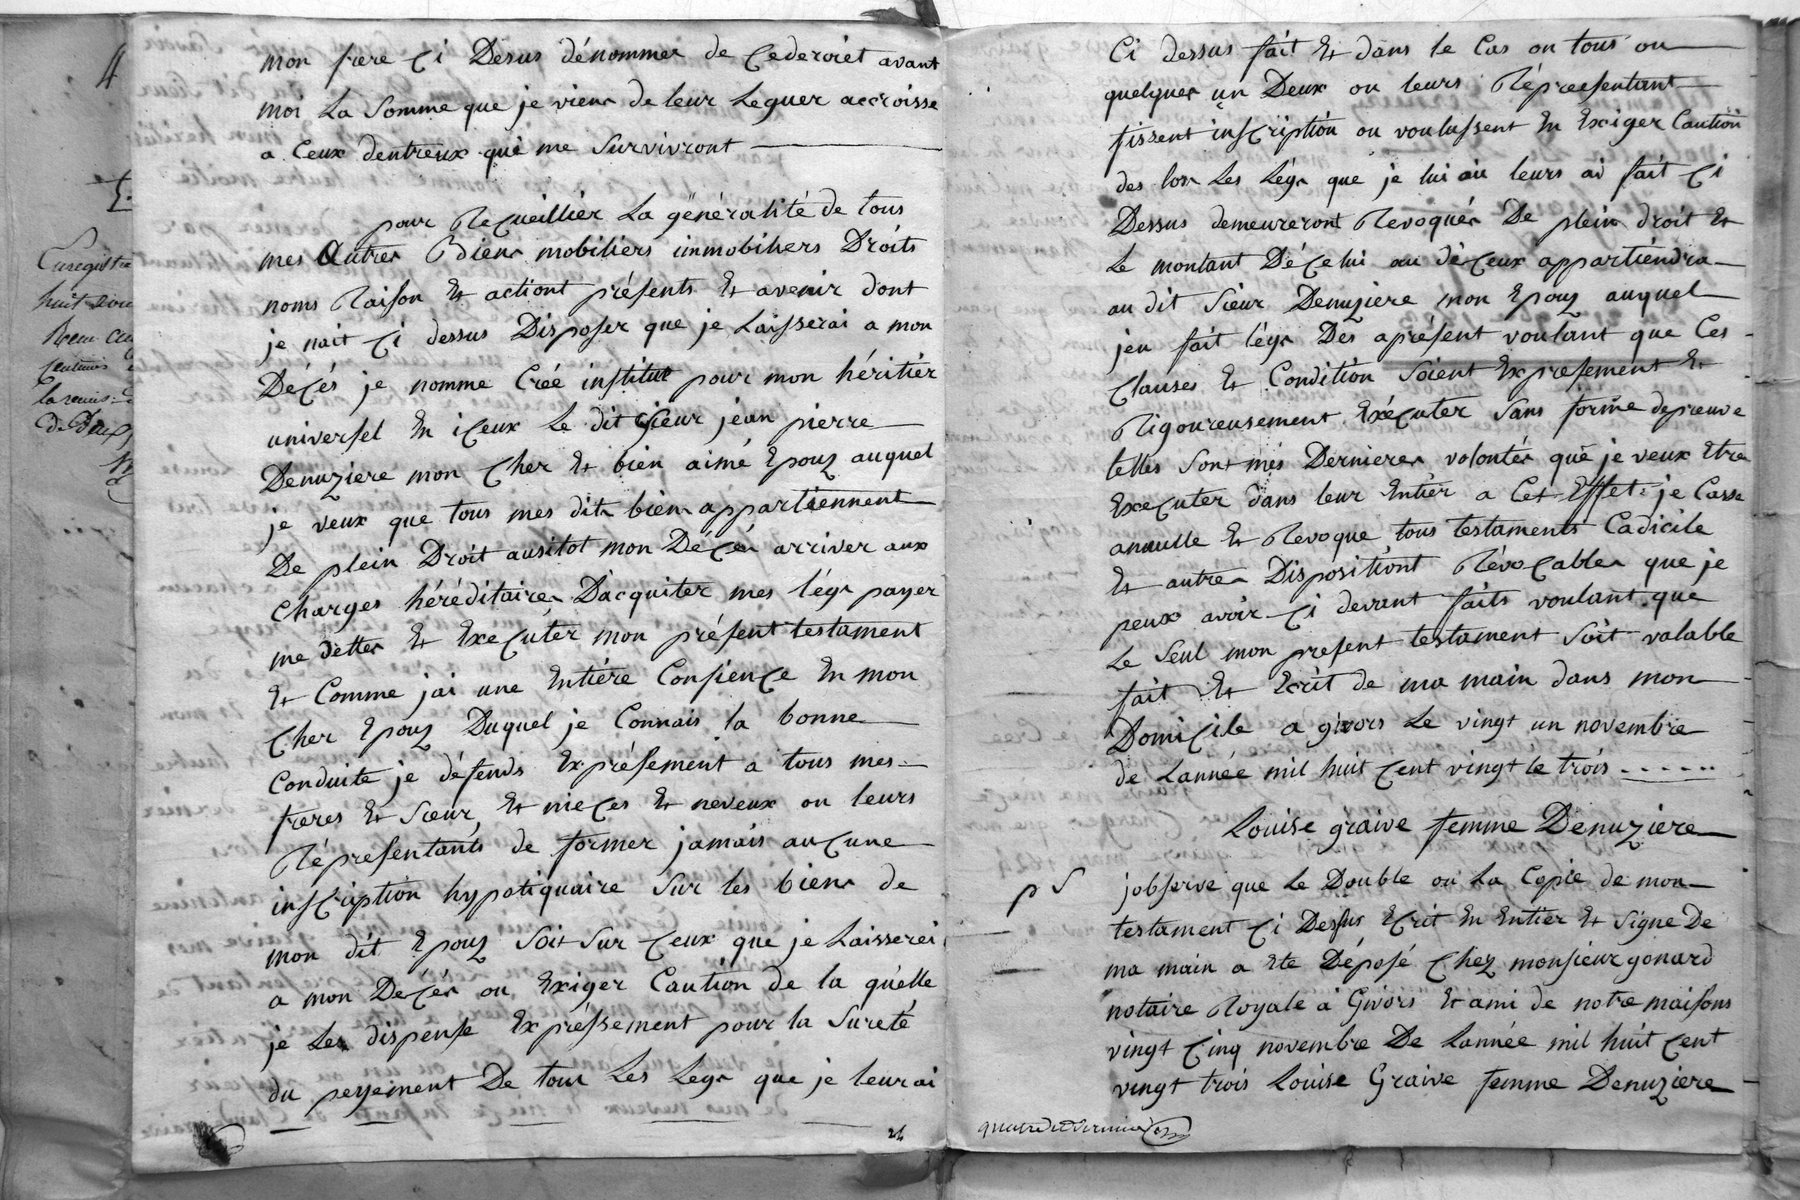 4
mon frere çi Desus dénommer de çederoiet avant
moi La Somme que je viens de leur Leguer accroisse
a Ceux dentreux qui me Survivront
pour Reçueillier La généralité de tous
mes Autres Biens mobiliers immobiliers Droits
noms Raison Et actiont présents Et avenir dont
je nait çi dessus Disposer que je Laisserai a mon
Déçés je nomme Créé institue pour mon héritier
universel En içeux Le dit Sieur jean pierre
Denuziere mon Cher Et bien aimé Epouz auquel
je veux que tous mes dits biens appartiennent
De plein Droit ausitot mon Déçés arriver aux
Charges héréditaires D'acquiter mes légs payer
me dettes Et Exeçuter mon présent testament
Et Comme jai une Entiére Consiençe En mon
Cher Epouz Duquel je Connais la bonne
Conduite je défends Exprésement a tous mes
freres Et Sœur, Et nieçes Et neveux ou leurs
Répresentants de former jamais auçune
insçription hypotiquaire Sur les biens de
mon dit Epouz Soit Sur Çeux que je Laisserei
a mon Déçés ou Exiger Caution de la quélle
je Les dispense Expréssement pour la Sureté
du peyement De tous Les Legs que je leur ai
Enregistré
huit
de Deux
Ci dessus fait Et dans le Cas ou tous ou
quelques un Deux ou leurs Répreesentant
fissent insCription ou voulussent En Exiger Caution
des lors Les Légs que je lui ou leurs ai fait çi
Dessus demeureront Revoqués De plein droit Et
Le montant Déçelui ou déçeux appartiendra
au dit Sieur Denuziere mon Epouz auquel
jeu fait légs Dés aprésent voulant que Ces
Clauses Et Condition Soient Expresement Et
Rigoureusement Exéçuter Sans forme depreuve
telles Sont més Dernieres volontés que je veux Etre
Exeçuter dans leur Entier a Cet Effet je Casse
anaulle Et Revoque tous testaments Cadicile
Et autres Dispositiont RévoCables que je
peux avoir çi devant faits voulant que
Le Seul mon present testament Soit valable
fait Et Ecrit de ma main dans mon
Domiçile a givors Le vingt un novembre
de Lannée mil huit çent vingt le trois
Louise graive femme Denuziere
p S jobserve que Le Double ou La Copie de mon
testament çi Dessus Ecrit En Entier Et Signe De
ma main a Ete Déposé Chez monsieur gonard
notaire Royale à Givors Et ami de notre maisons
vingt Çinq novembre De Lannée mil huit çent
vingt trois Louise Graive femme Denuziere